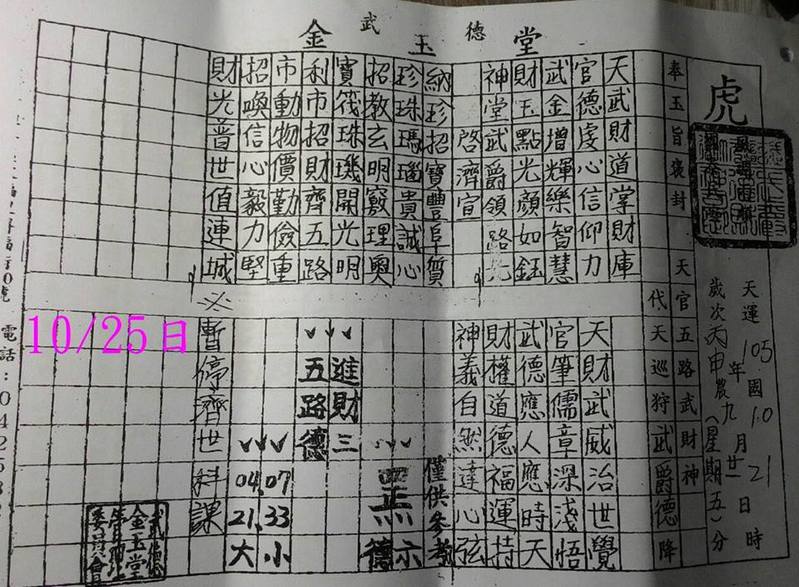 武德
金玉堂
虎
天運105年國10月21日時
歲次丙申農九月廿一日(星期五)分
奉玉旨褒封 天官五路武財神
代天巡狩武爵德降
天武財道掌財庫
官德虔心信仰力
武金增輝樂智慧
財玉點光顏如鈺
神堂武爵領路光
啓濟宣
納珍招寶豐阜質
珍珠瑪瑙貴誠心
招教玄明竅理奧
寶筏珠璣開光明
利市招財齊五路
市動物價勤儉重
招喚信心毅力堅
財光普世值連城
天財武威治世覺
官筆儒章深淺悟
武德應人應時天
財權道德福運持
神義自然達心弦
僅供參考
六
德
進財三
五路德
07.33小
04.21.大
※暫停濟世科課
10/25日
金玉堂
管理
委員會
電話:04258